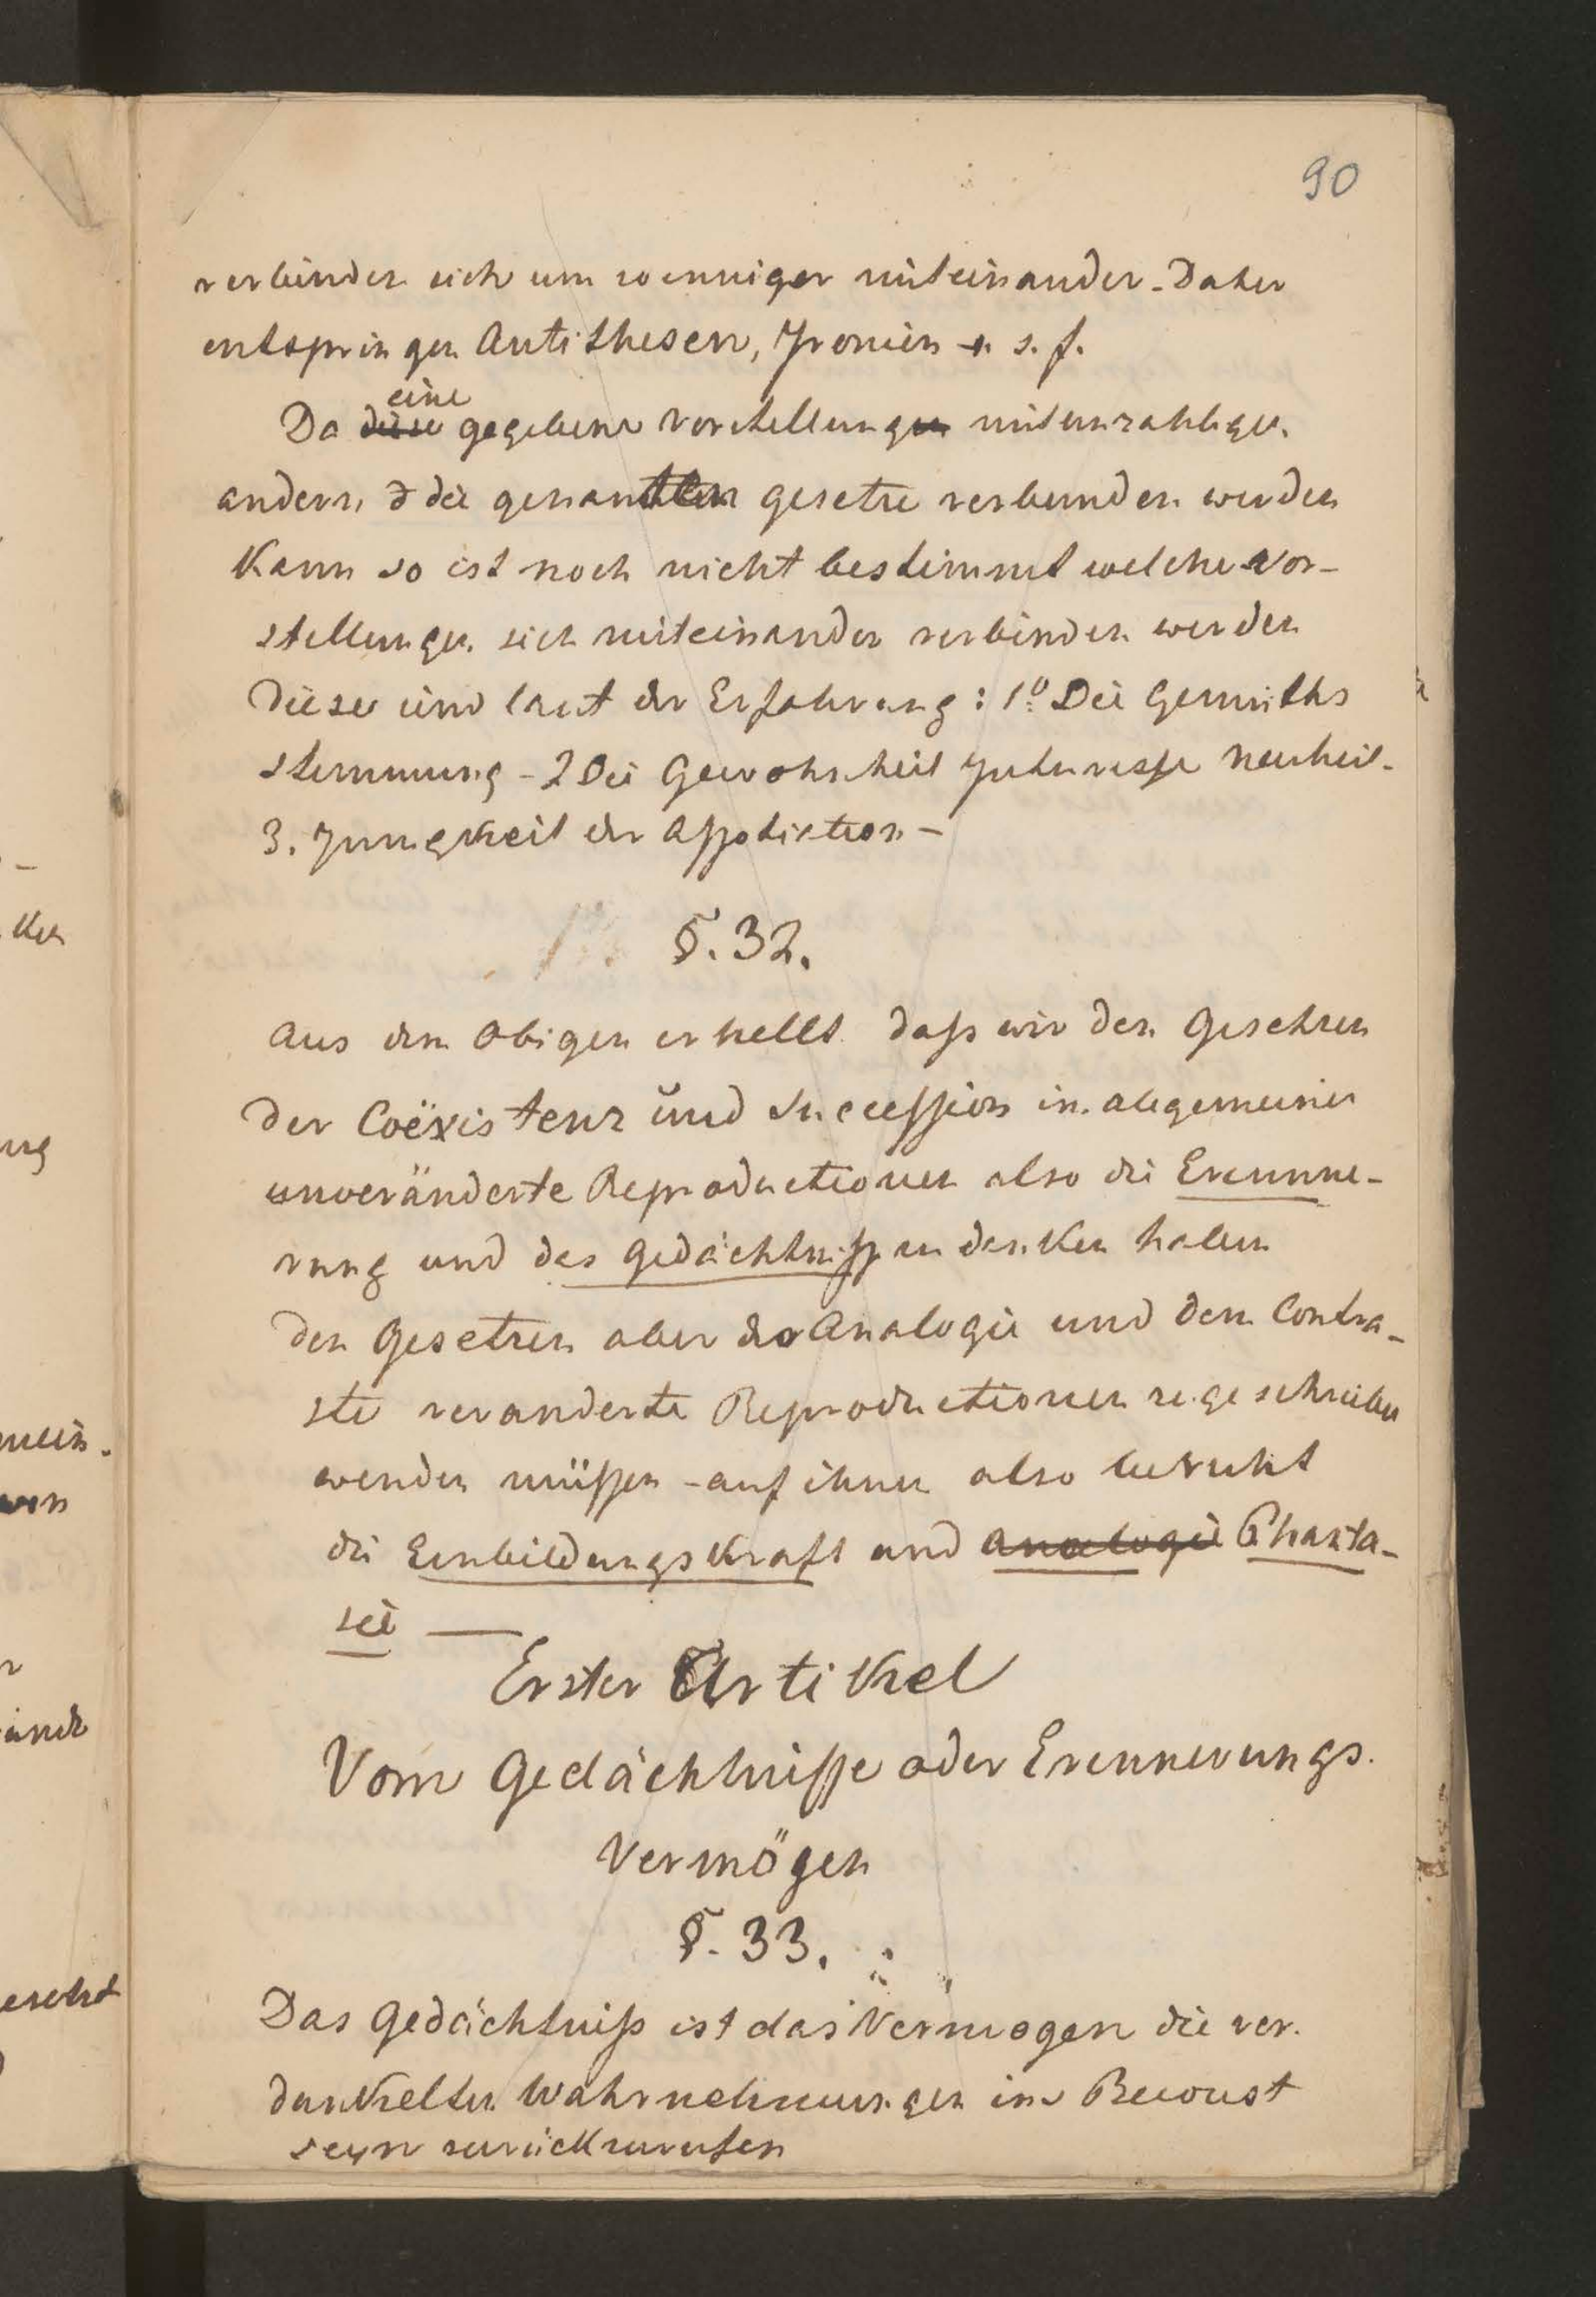 90
verbinden sich um wenniger miteinander. Daher
entspringen Antithesen, Ironien u. s. f.
eine
Da diese gegebene Vorstellungen mit unzahligen
andern d die genannten gesetze verbunden werden
kann so ist noch nicht bestimmt welche Vor-
stellungen sich miteinander verbinden werden
Diese sind laut der Erfahrung: 1º Die Gemüths
stimmung - 2 Die Gewohnheit Interesse Neuheit-
3. Innigkeit der Association -
§. 32.
Aus dem Obigen erhellt daß wir den Gesetzen
der Coëxistenz und Succession in allgemeinen
unveränderte Reproductionen also die Erinne-
rung und das Gedächtniß zu danken haben
den Gesetzen aber der Analogie und dem Contra-
ste veranderte Reproductionen zugeschrieben
werden müssen - auf ihnen also beruht
die Einbildungskraft und Analogie Phanta-
sie —
Erster Artikel
Vom Gedächtnisse oder Erinnerungs-
Vermögen
§. 33.
Das Gedächtniß ist das Vermogen die ver-
dunkelten Wahrnehmungen ins Bewust
seyn zurückzurufen
ken
ung
mein.
von
esetzt